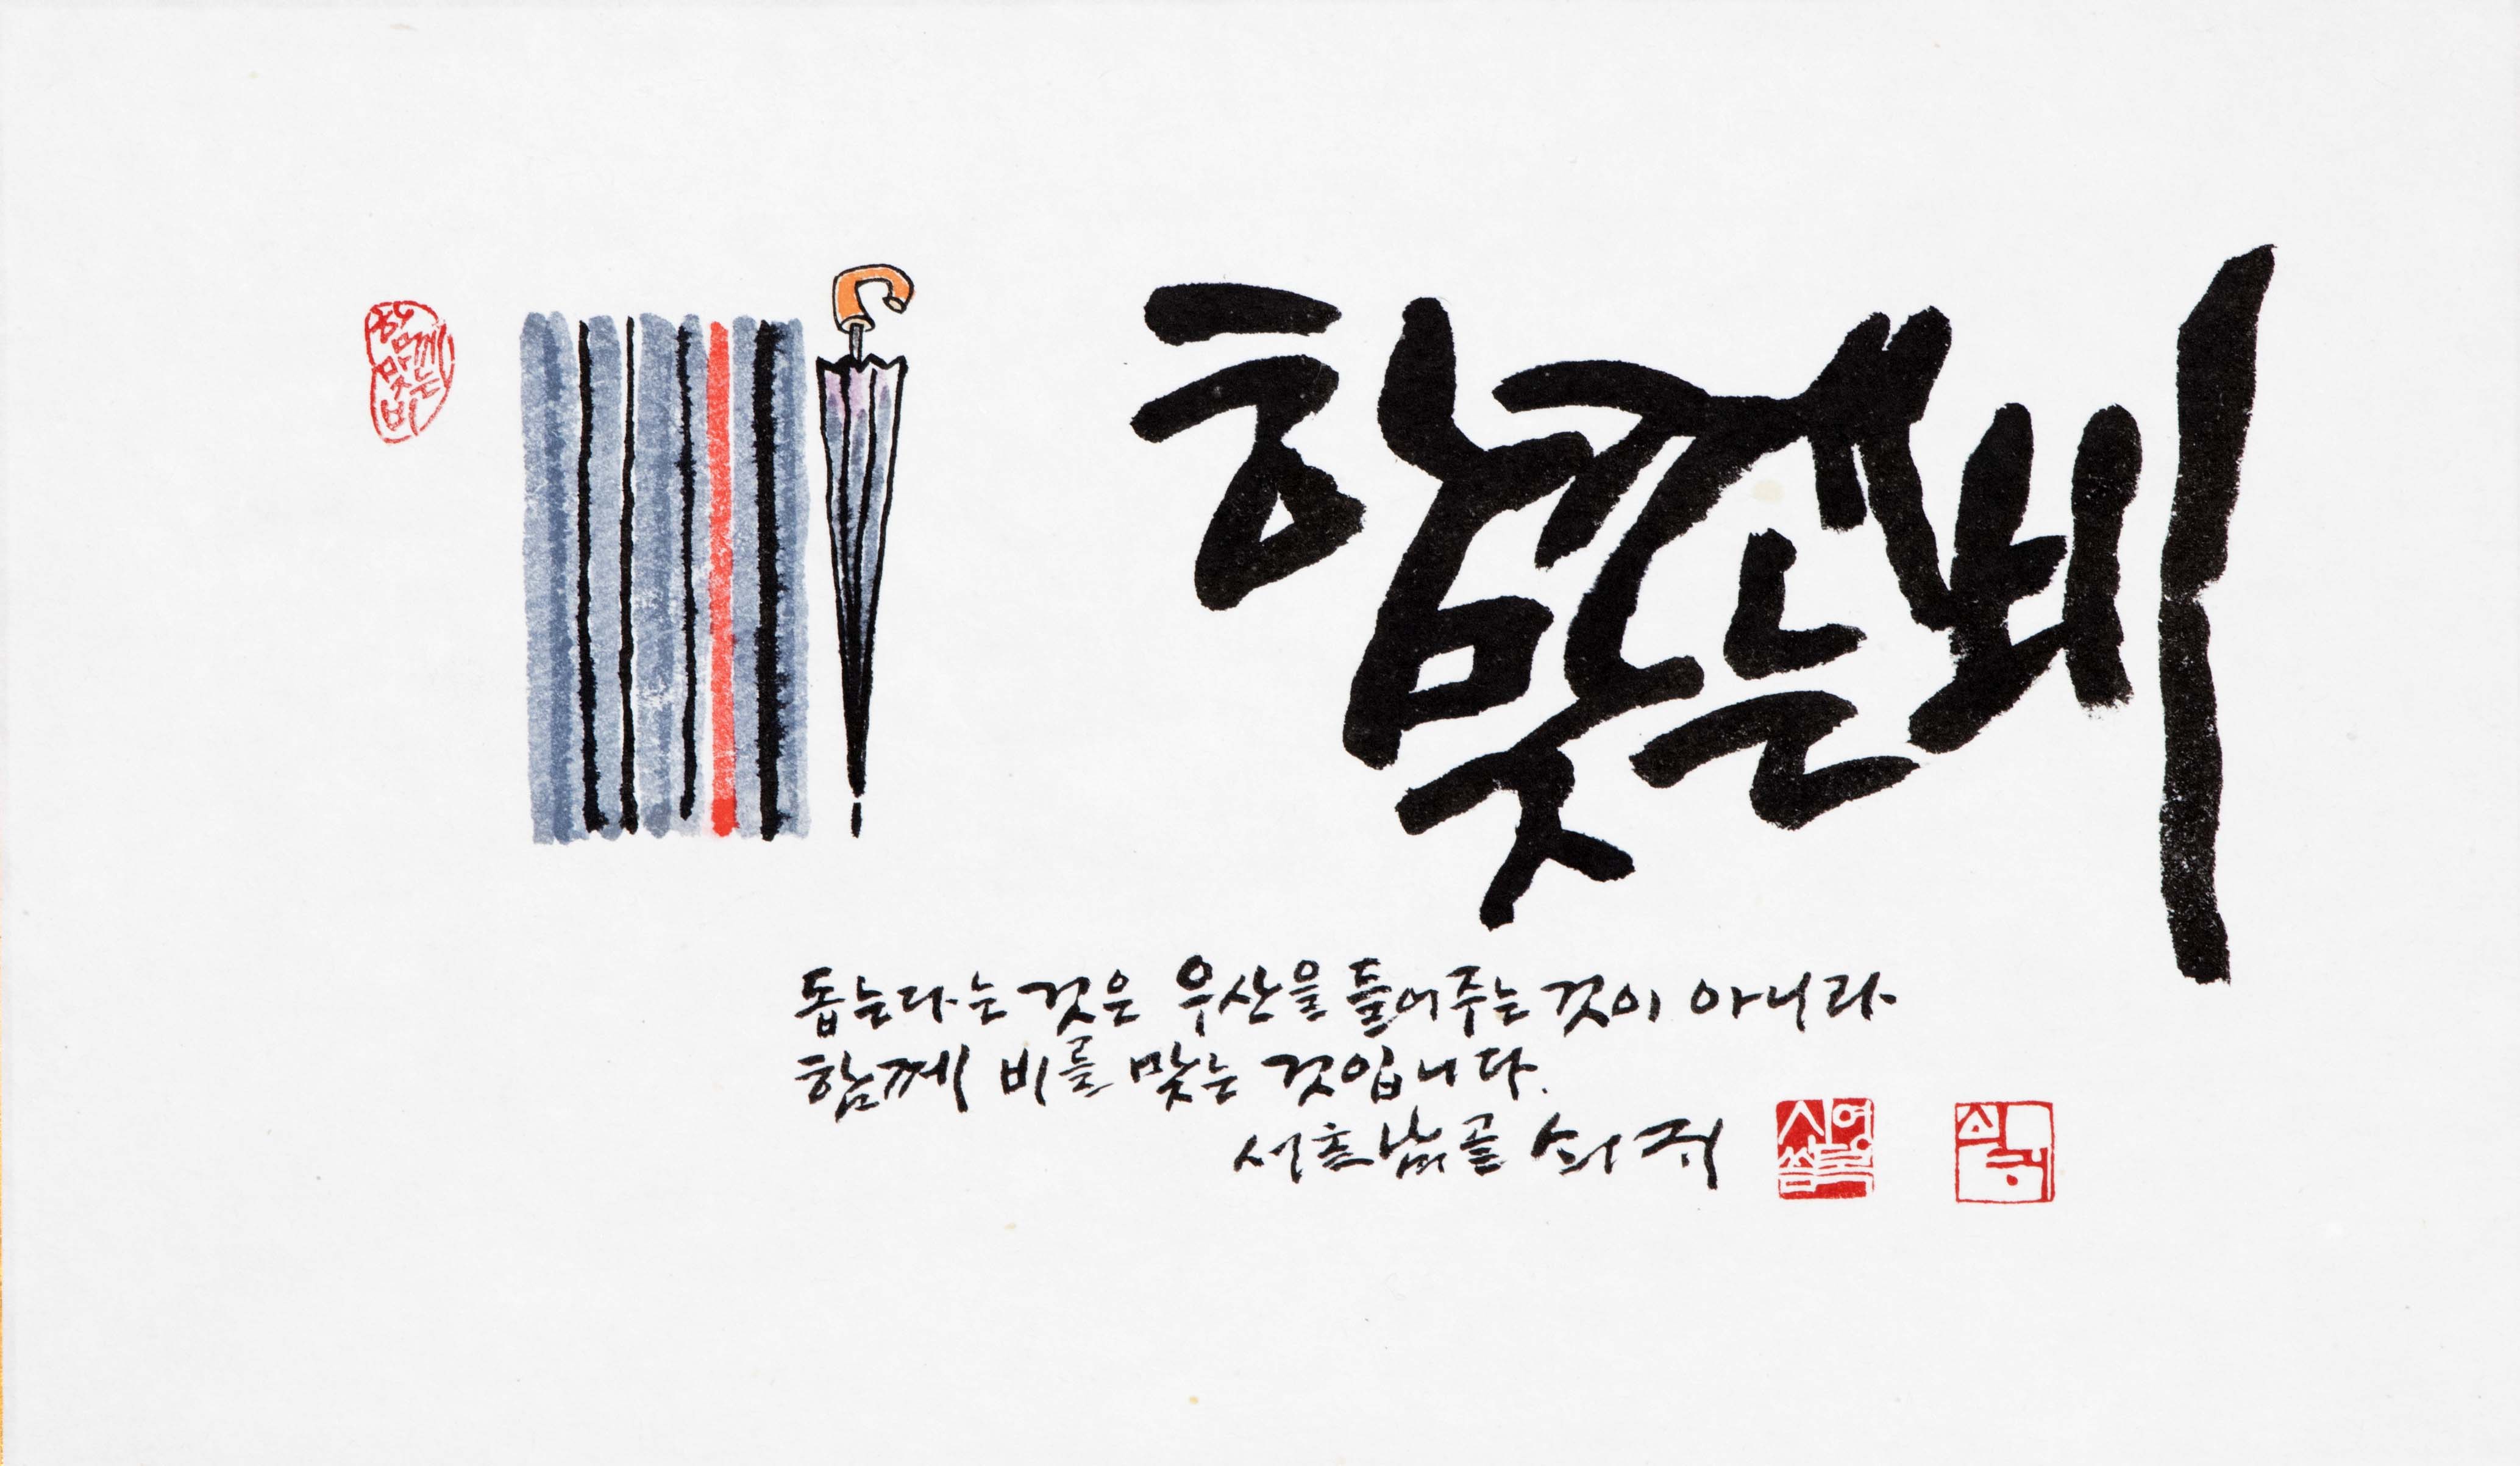 함께 맞는 비
돕는다는 것은 우산을 들어주는 것이 아니라
함께 비를 맞는 것입니다.
서흐납골 쇠귀
함께
맞는
비